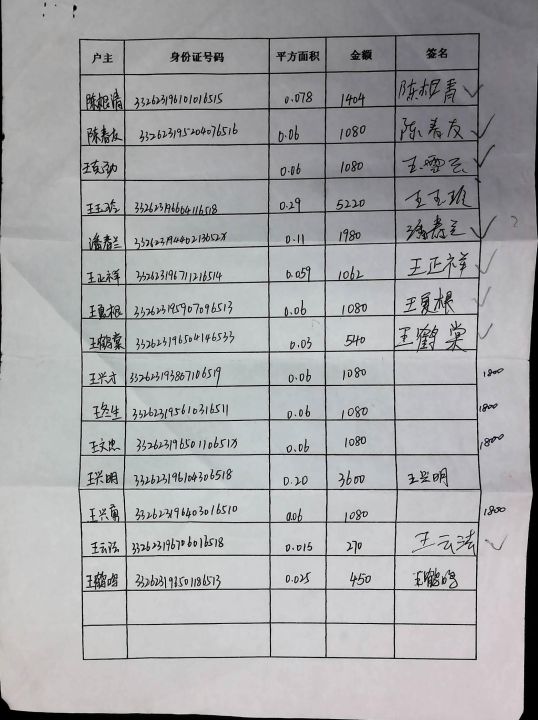 户主 身份证号码 平方面积 金额 签名
陈根清 332623196101016515 0.078 1404 陈根青
陈春友 332623195204076516 0.06 1080 陈春友
王克勁 0.06 1080
王玉玲 332623196604116518 0.29 5220 王玉玲
潘春兰 33262319440213652X 0.11 1980 潘春兰 ?
王正祥 332623196711216514 0.059 1062 王正祥
王夏根 332623195907096513 0.06 1080 王夏根
王鹤棠 332623196504146533 0.03 540 王鹤棠
王兴才 332623193867106519 0.06 1080 1800
王冬生 332623195610316511 0.06 1080 1800
王文忠 33262319650110651X 0.06 1080 1800
王兴明 332623196104306518 0.20 3600 王兴明
王兴勇 332623196403016510 0.06 1080 1800
王云法 332623196706016518 0.015 270 王云法
王鹤鸣 332623198501186513 0.025 450 王鹤鸣